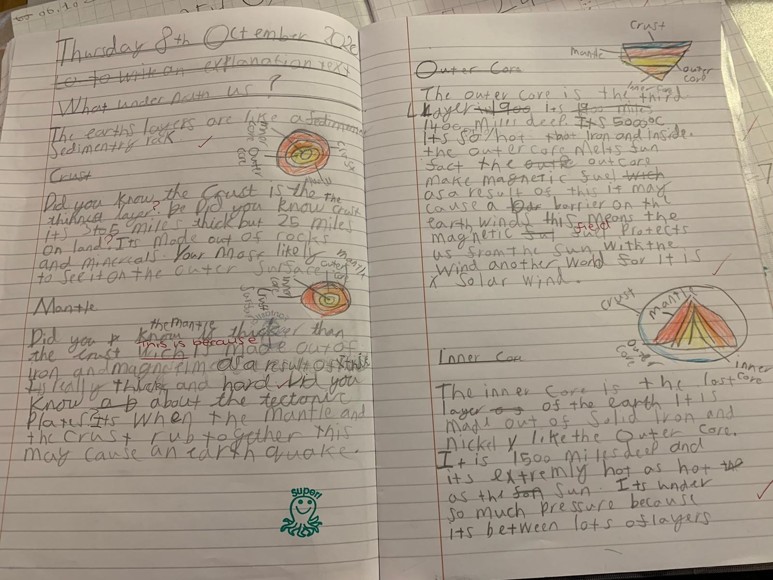 Thursday 8th October 2020
Lo to writ an explanation text
What under neath us?
The earths layers are like a
Sedimentry rock
inner core
Outer core
Crust
Mantle
Crust
Did you know the Crust is the
thinned layer? Did you know The Crust
its 3to5 miles thick but 25 miles
on land? Its Made out of rocks
and minercals. Your Most likely
to see it on the outer surface
mantle
outer core
inner core
Mantle
Did you know the mantle is thicker than
the crust This is because
made out of
iron and magneim as a result of this
is really thick and hard. Did you
Know about the tectonic
Plates. Its when the mantle and
the crust rub together this
may cause an earth quake.
super!
Crust
mantle
outer core
inner core
Outer Core
The outer core is the third
Layer. Its
1400 Miles deep. Its 5000°C
Its so hot that Iron and inside.
the outer core melts fun
fact the outcore
make magnetic fuel
as a result of this it may
cause a barrier on the
earth winds this means the
magnetic field Protects
us from the Sun with the
Wind another World for it is
Solar Wind.
crust
mantle
outer core
inner core
Inner Core
The inner core is the last
layer of the earth It is
made out of Solid Iron and
nickel like the Outer Core.
It is 1500 Miles deep and
its extremly hot as hot
as the Sun. Its under
so much pressure because
its between lots of layers